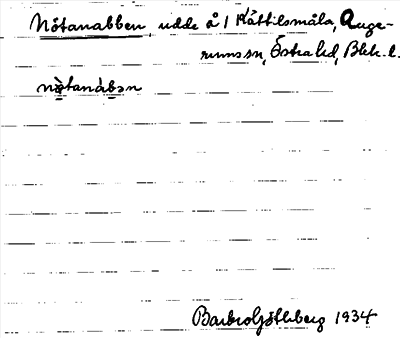 Nötanabben, udde å 1 Kättilsmåla, Auge-
rums sn, Östra hd, Blek. l.
nö̀tanàbən
Barbro Götlberg 1934